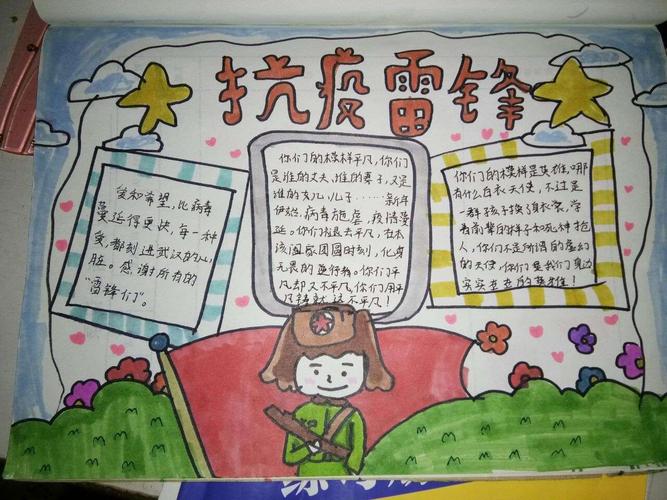 抗疫雷锋
爱和希望,比病毒
蔓延得更快,每一种
爱,都刻进武汉的心
脏。感谢所有的
“雷锋们”。
你们的模样平凡,你们
是谁的丈夫、谁的妻子,又是
谁的女儿、儿子……新年
伊始,病毒施虐,疫情蔓
延。你们挺退去平凡,在本
该阖家团圆时刻,化身
无畏的逆行者。你们平
凡却又不平凡,你们用平
凡铸就这不平凡!
你们的模样是英雄,哪
有什么白衣天使,不过是
一群孩子换了身衣裳,学
着前辈的样子和死神抢
人,你们不是所谓的虚幻
的天使,你们是我们身边
实实在在的英雄!